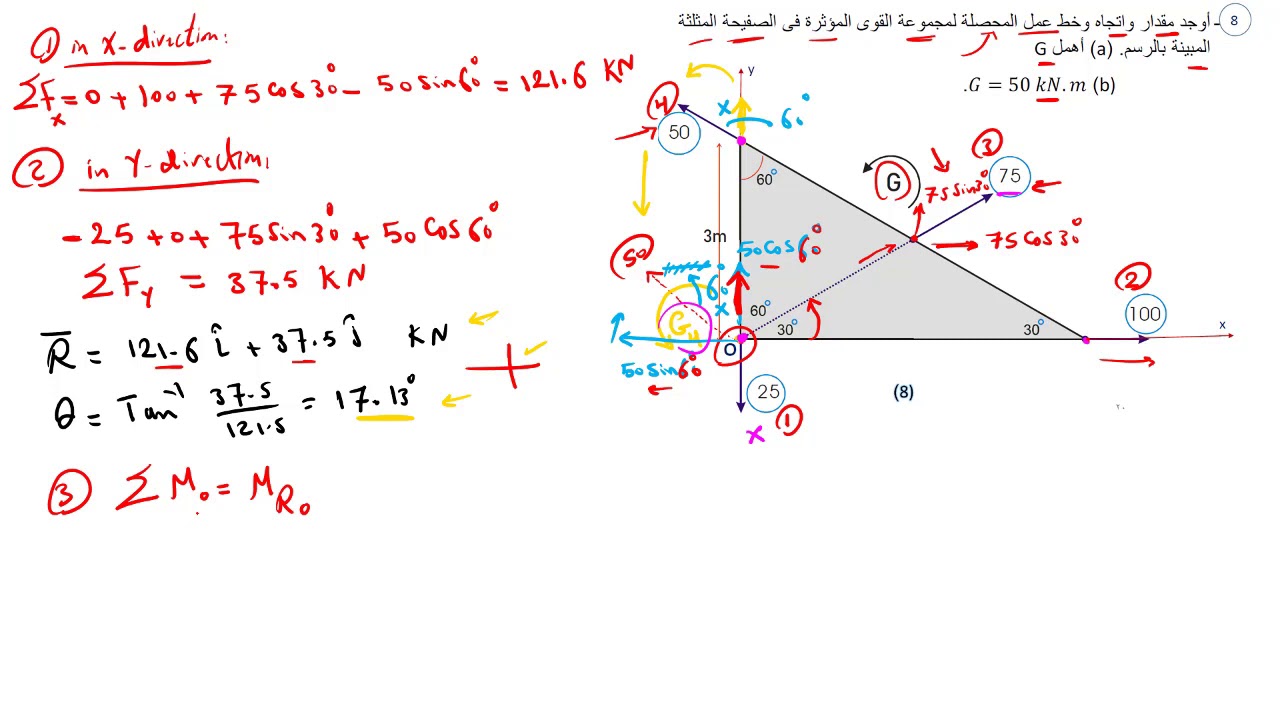 8 - أوجد مقدار واتجاه وخط عمل المحصلة لمجموعة القوى المؤثرة فى الصفيحة المثلثة
المبينة بالرسم. (a) أهمل G
(b) G = 50 kN.m.
① in X-direction:
ΣFx = 0 + 100 + 75 cos 30° − 50 sin 60° = 121.6 KN
② in Y-direction:
− 25 + 0 + 75 sin 30° + 50 cos 60°
ΣFy = 37.5 KN
R̅ = 121.6 î + 37.5 ĵ KN
θ = Tan⁻¹ 37.5/121.5 = 17.13°
③ ΣMo = MRo
y
④
x
60°
50
③
75
G
75 sin 30°
60°
75 cos 30°
3m
50 cos 60°
50
60°
②
100
x
60°
G
x
30°
30°
O
50 sin 60°
25
①
x
(8)
٢٠